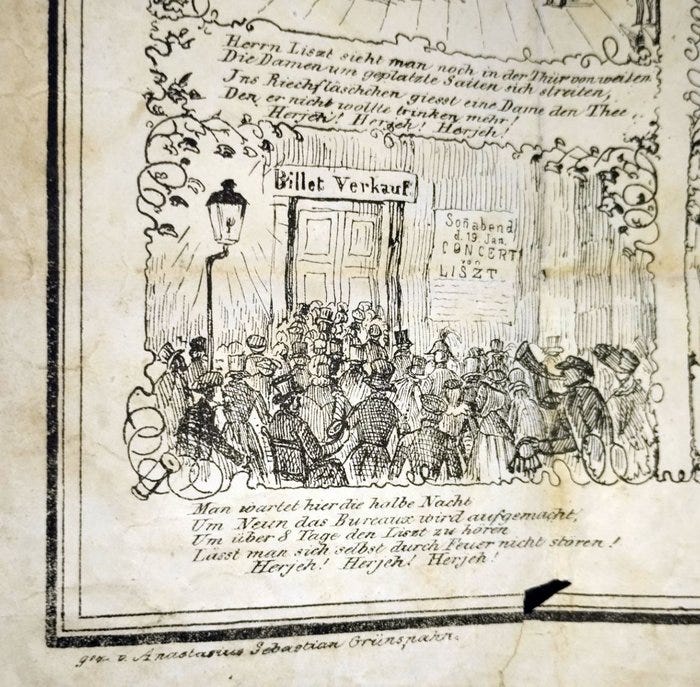 Herrn Liszt sieht man noch in der Thür von weiten
Die Damen um geplatzte Saiten sich streiten,
Ins Riechfläschchen giesst eine Dame den Thee
Den er nicht wollte trinken mehr!
Herjeh! Herjeh! Herjeh!
Billet Verkauf
Soñabend
d. 19 Jan.
CONCERT
von
LISZT
Man wartet hier die halbe Nacht
Um Neun das Bureaux wird aufgemacht,
Um über 8 Tage den Liszt zu hören
Lässt man sich selbst durch Feuer nicht stören!
Herjeh! Herjeh! Herjeh!
gez. v. Anastasius Sebastian Grünspahn.